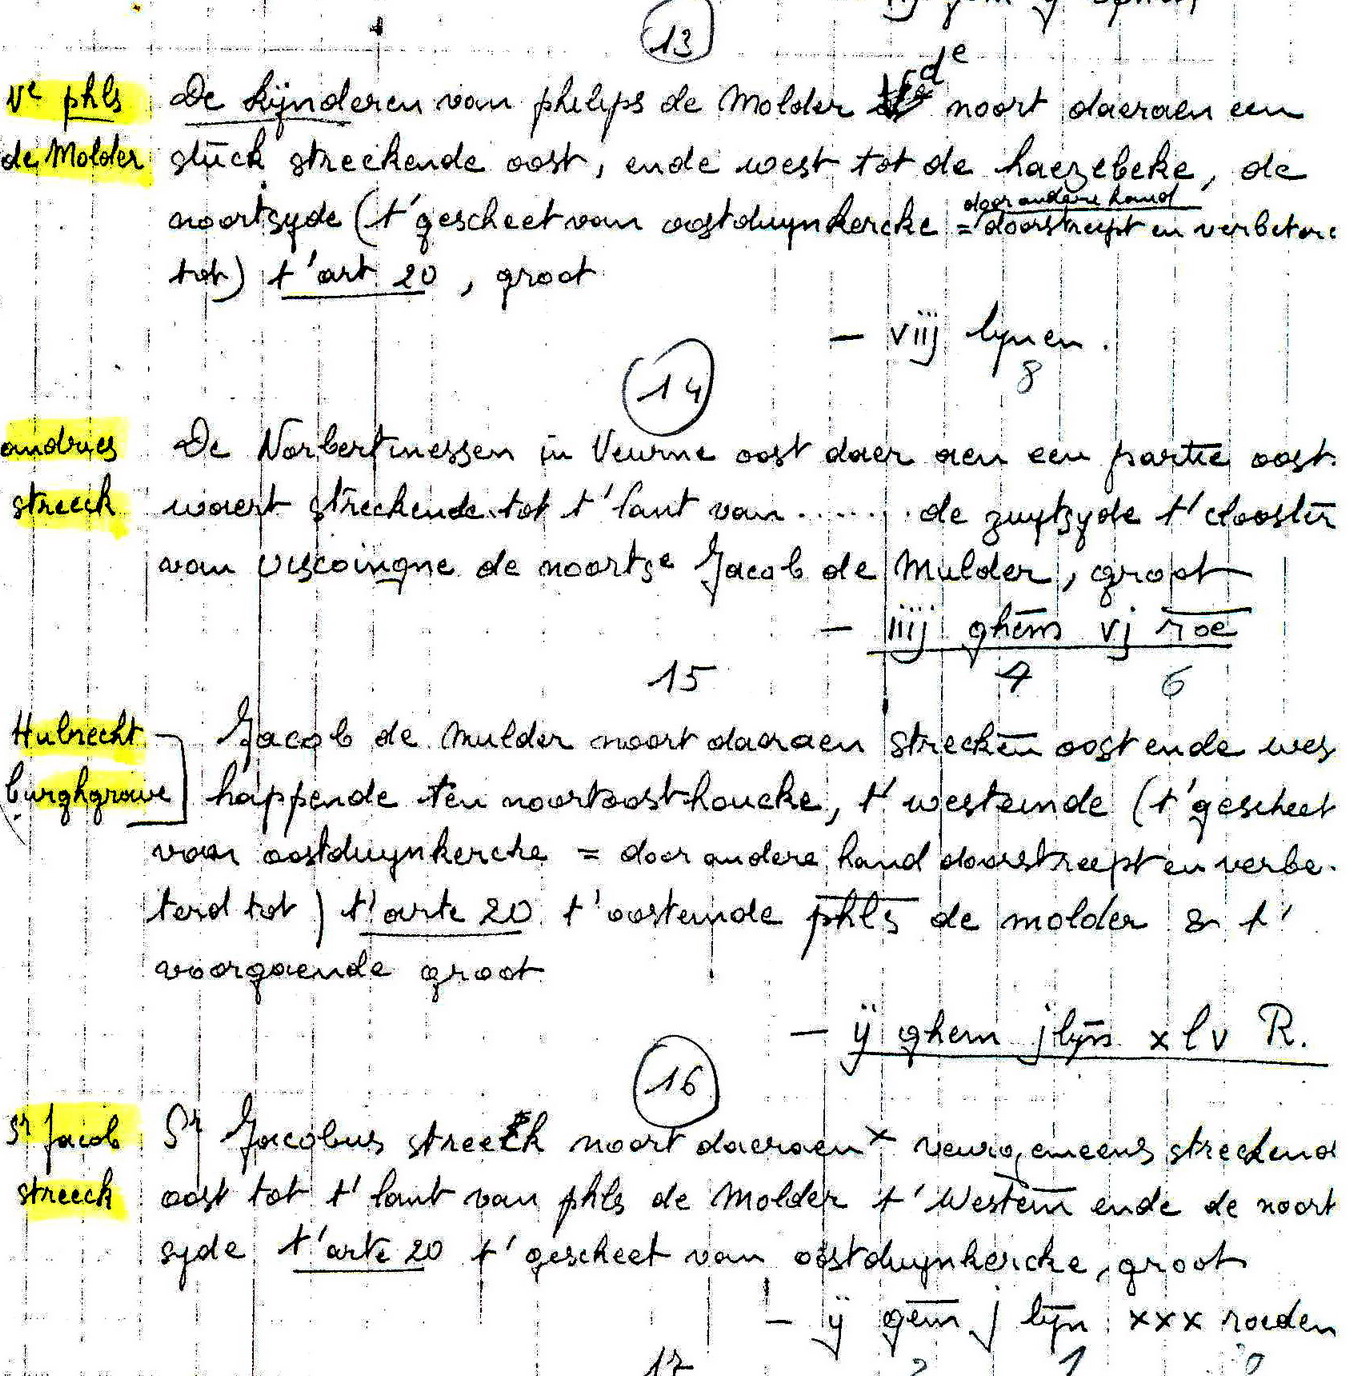 13
Ve phls De kijnderen van philips de Molder de noort daeraen een
de Molder stuck streckende oost, ende west tot de haezebeke, de
door andere hand
noortzyde (t'gescheet van oostduynkercke = doorstreept en verbeterd
tot) t'art 20, groot
— viij lynen.
8
14
andries De Norbertinessen in Veurne oost daer aen een partie oost-
streeck waert streckende tot t'lant van ....... de zuytzyde t'clooster
van viscoingne de noortse Jacob de Mulder, groot
— iiij ghem vj roe
4 6
15
Hubrecht Jacob de Mulder noort daeraen strecken oost ende wes
burghgrave happende ten noortoosthoucke, t'westeinde (t'gescheet
van oostduynkercke = door andere hand doorstreept en verbe-
terd tot) t'arte 20 t'oosteinde phls de molder & t'
voorgaende groot
— ij ghem j lyn xlv R.
16
Sr Jacob Sr Jacobus streeck noort daeraen x streckend
streeck oost tot t'lant van phls de Molder t'Westein ende de noort
syde t'arte 20 t'gescheet van oostduynkercke, groot
— ij gem j lyn xxx roeden
17 2 1